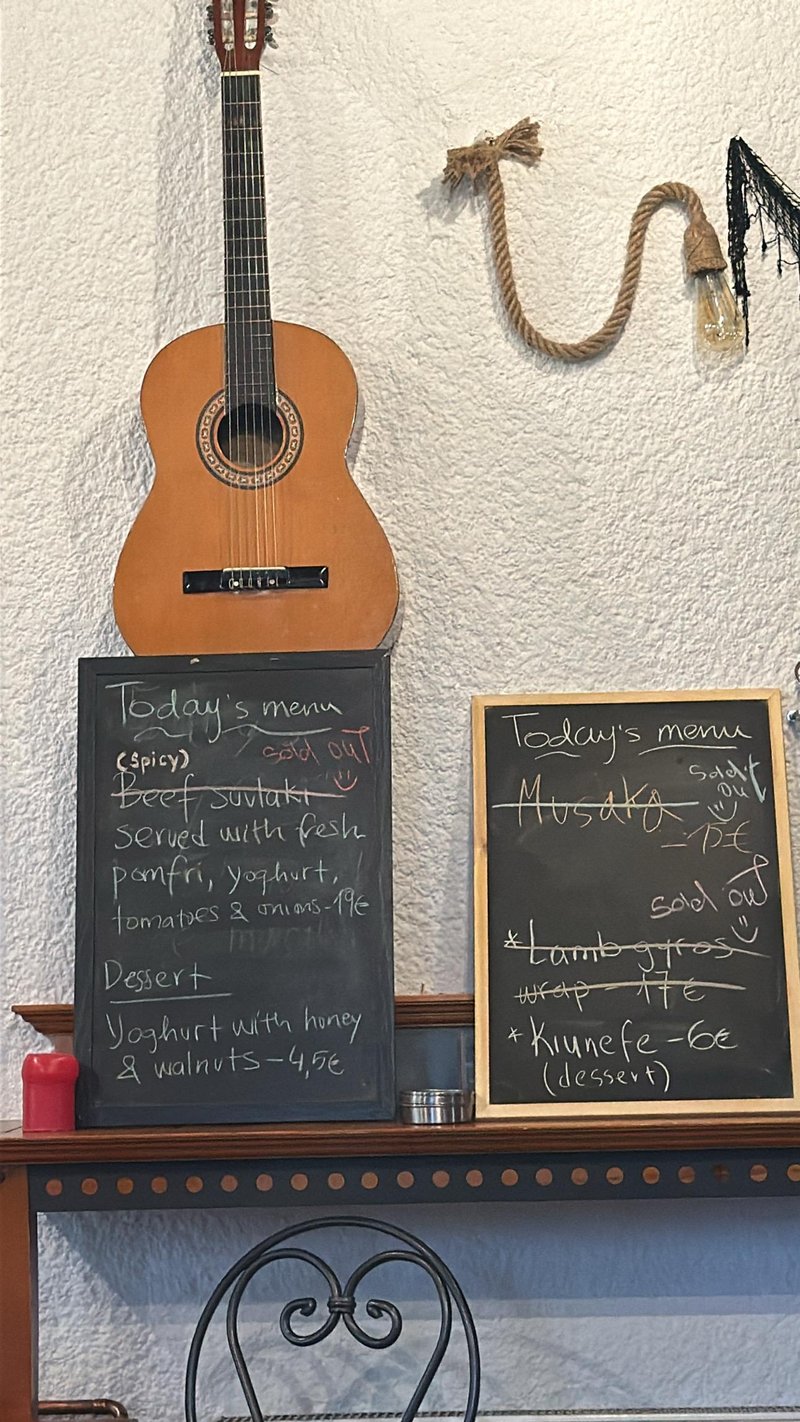 Today's menu
(Spicy) sold out
Beef suvlaki
served with fresh
pomfri, yoghurt,
tomatoes & onions-19€
Dessert
Yoghurt with honey
& walnuts - 4,5€
Today's menu
Musaka sold out
sold out
*Lamb gyros
wrap - 17€
*Kıunefe - 6€
(dessert)